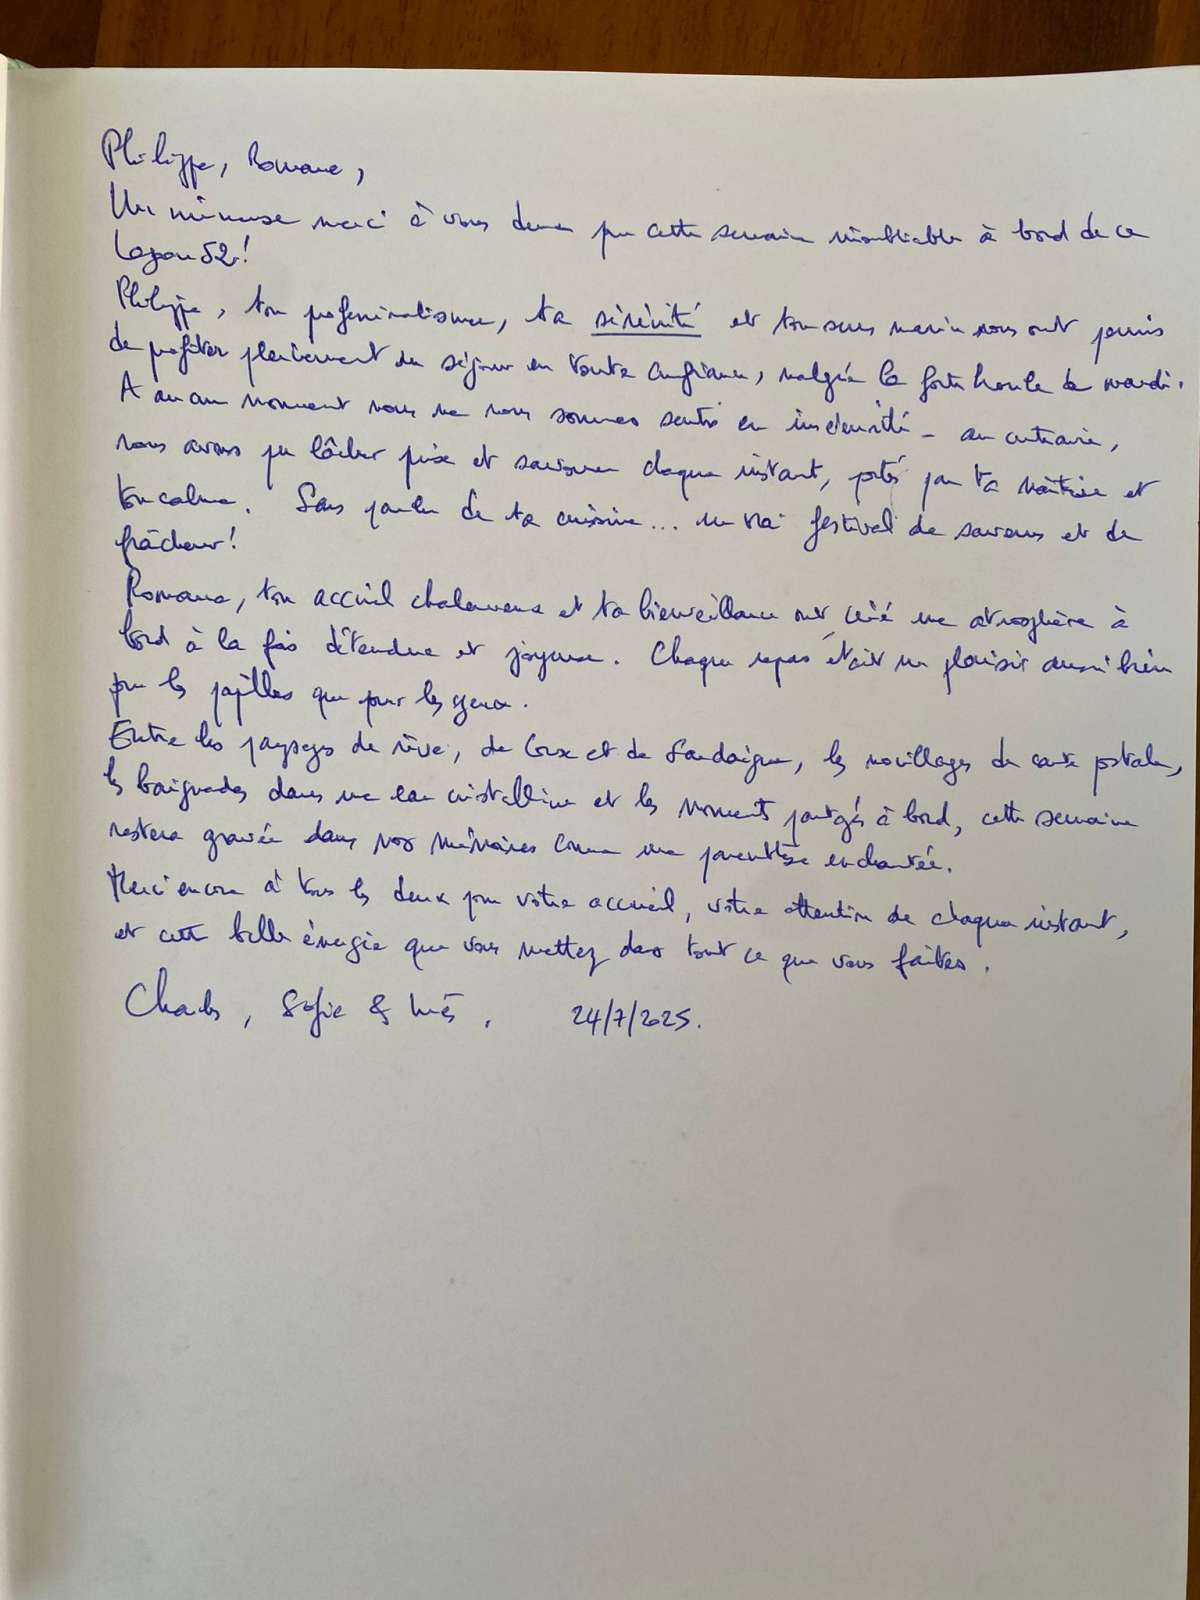 Philippe, Romane,
Un immense merci à vous deux pour cette semaine inoubliable à bord de ce
Lagoon 52!
Philippe, ton professionnalisme, ta sérénité et ton sens marin nous ont permis
de profiter pleinement du séjour en toute confiance, malgré la forte houle de mardi.
A aucun moment nous ne nous sommes sentis en insécurité - au contraire,
nous avons pu lâcher prise et savourer chaque instant, portés par ta maîtrise et
ton calme. Sans parler de ta cuisine... un vrai festival de saveurs et de
fraîcheur!
Romane, ton accueil chaleureux et ta bienveillance ont créé une atmosphère à
bord à la fois détendue et joyeuse. Chaque repas était un plaisir aussi bien
pour les papilles que pour les yeux.
Entre les paysages de rêve, de Corse et de Sardaigne, les mouillages de carte postale,
les baignades dans une eau cristalline et les moments partagés à bord, cette semaine
restera gravée dans nos mémoires comme une parenthèse enchantée.
Merci encore à tous les deux pour votre accueil, votre attention de chaque instant,
et cette belle énergie que vous mettez dans tout ce que vous faites.
Charles, Sofie & Inés. 24/7/2025.